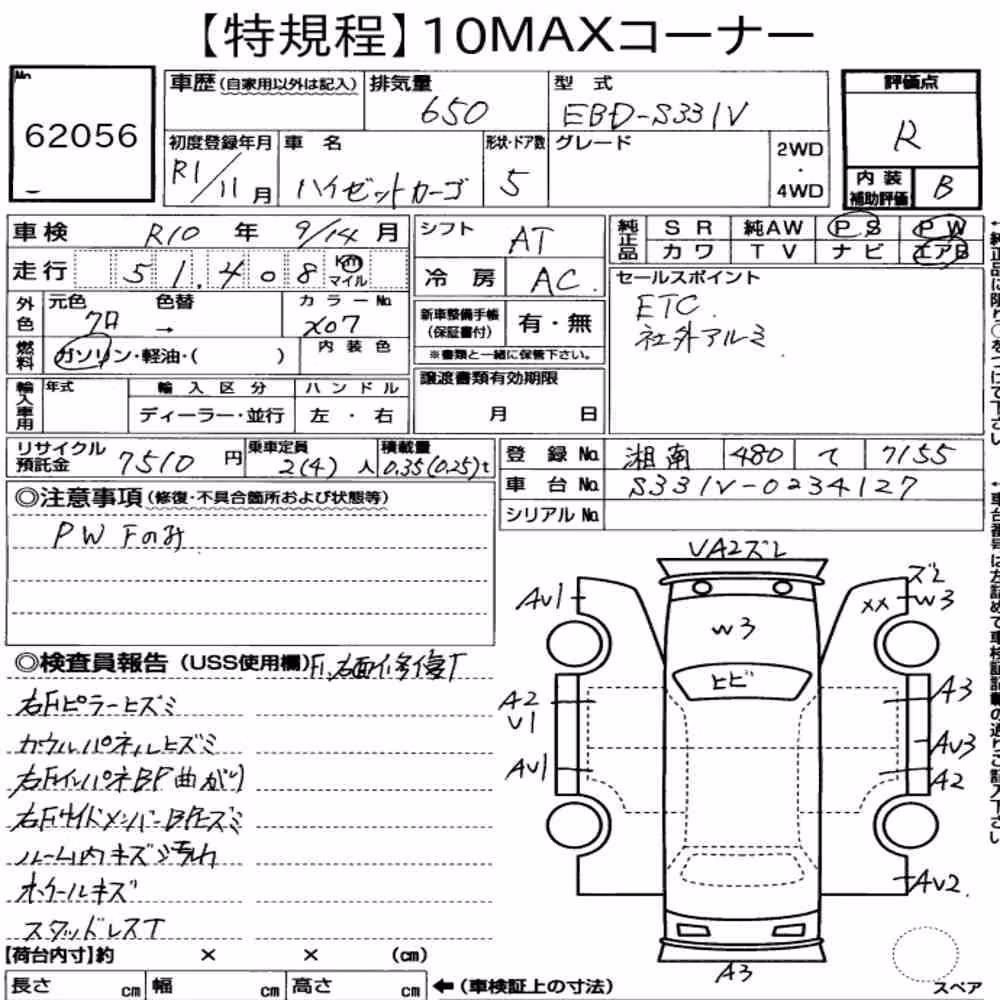 【特規程】10MAXコーナー
No
62056
車歴(自家用以外は記入)
排気量
650
型式
EBD-S331V
評価点
R
初度登録年月
R1/11月
車名
ハイゼットカーゴ
形状・ドア数
5
グレード
2WD
・
4WD
内装
補助評価
B
車検 R10年 9/14月
走行 51,408 Km
マイル
シフト
AT
冷房 AC
純正品
SR 純AW PS PW
カワ TV ナビ エアB
外色
元色 色替 カラーNo
クロ → X07
新車整備手帳
(保証書付)
有・無
※書類と一緒に保管下さい。
セールスポイント
ETC
社外アルミ
燃料
ガソリン・軽油・( )
内装色
輸入車用
年式
輸入区分 ハンドル
ディーラー・並行 左・右
譲渡書類有効期限
月 日
リサイクル
預託金
7510円
乗車定員
2(4)人
積載量
0.35(0.25)t
登録No 湘南 480 て 7155
車台No S331V-0234127
シリアルNo
◎注意事項(修復・不具合箇所および状態等)
PW Fのみ
◎検査員報告(USS使用欄)F、右面修復有
右Fピラーヒズミ
カウルパネルヒズミ
右FインパネBP曲がり
右FサイドメンバーBPヒズミ
ルーム内キズ汚れ
ホイールキズ
スタッドレスT
【荷台内寸】約 × × (cm)
長さ cm 幅 cm 高さ cm
←(車検証上の寸法)
VA2ズレ
AV1
ズレ
XX
W3
W3
ヒビ
A2
V1
A3
AV1
AV3
A2
AV2
A3
スペア